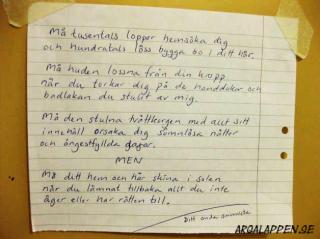 Må tusentals loppor hemsöka dig
och hundratals löss bygga bo i ditt hår.
Må huden lossna från din kropp
när du torkar dig på de handdukar och
badlakan du stulit av mig.
Må den stulna tvättkorgen med allt sitt
innehåll orsaka dig sömnlösa nätter
och ångestfyllda dagar.
MEN
Må ditt hem och hår skina i solen
när du lämnat tillbaka allt du inte
äger eller har rätten till.
Ditt onda samvete
ARGALAPPEN.SE